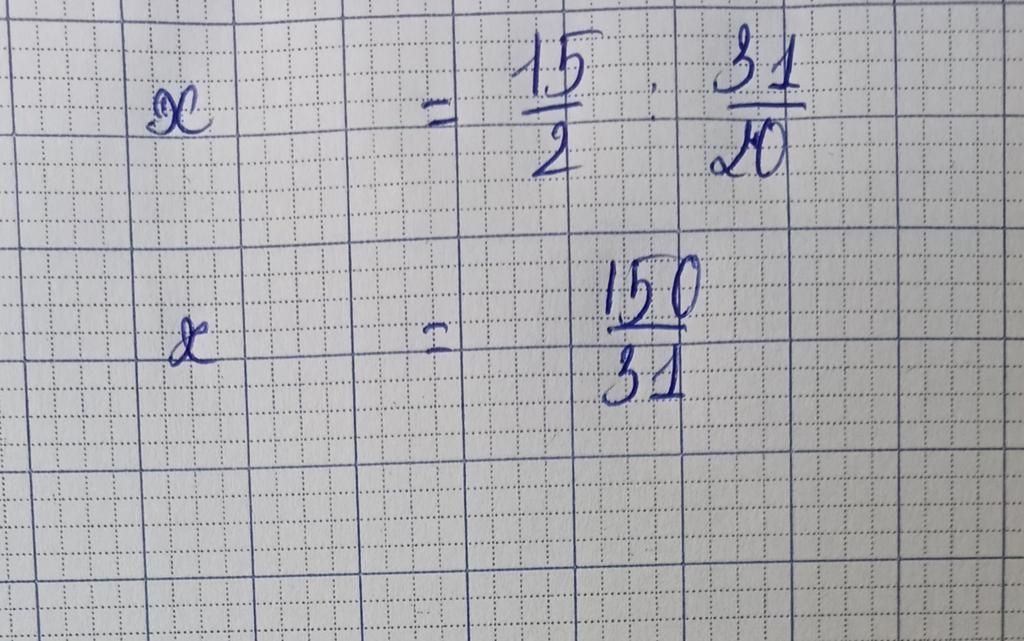 x = 15/2 : 31/20
x = 150/31